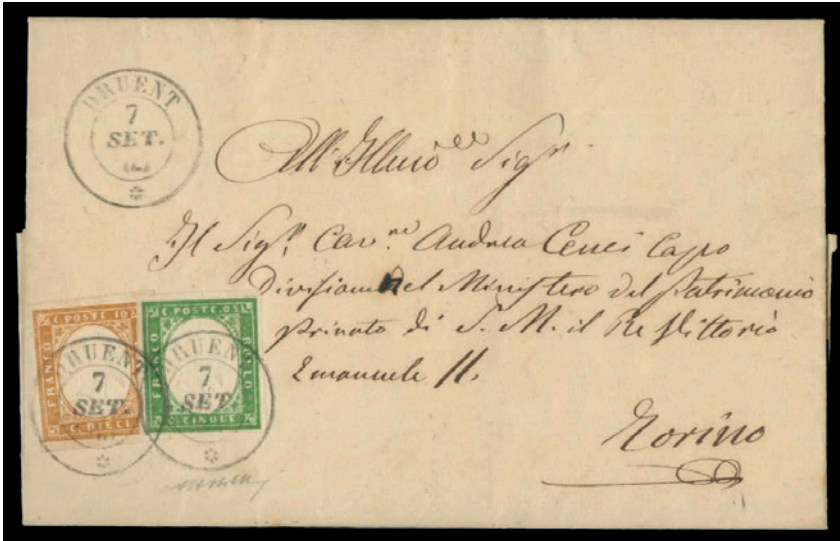 DRUENT
7
SET.
All' Illmo Sigr
Il Sigr. Cav.re Andrea Cenci Capo
Divisione nel Ministero del Patrimonio
privato di S. M. il Re Vittorio
Emanuele II.
Torino
C. POSTE 10
FRANCO
C. DIECI
DRUENT
7
SET.
C. POSTE 05
FRANCO
BOLLO
C. CINQUE
DRUENT
7
SET.